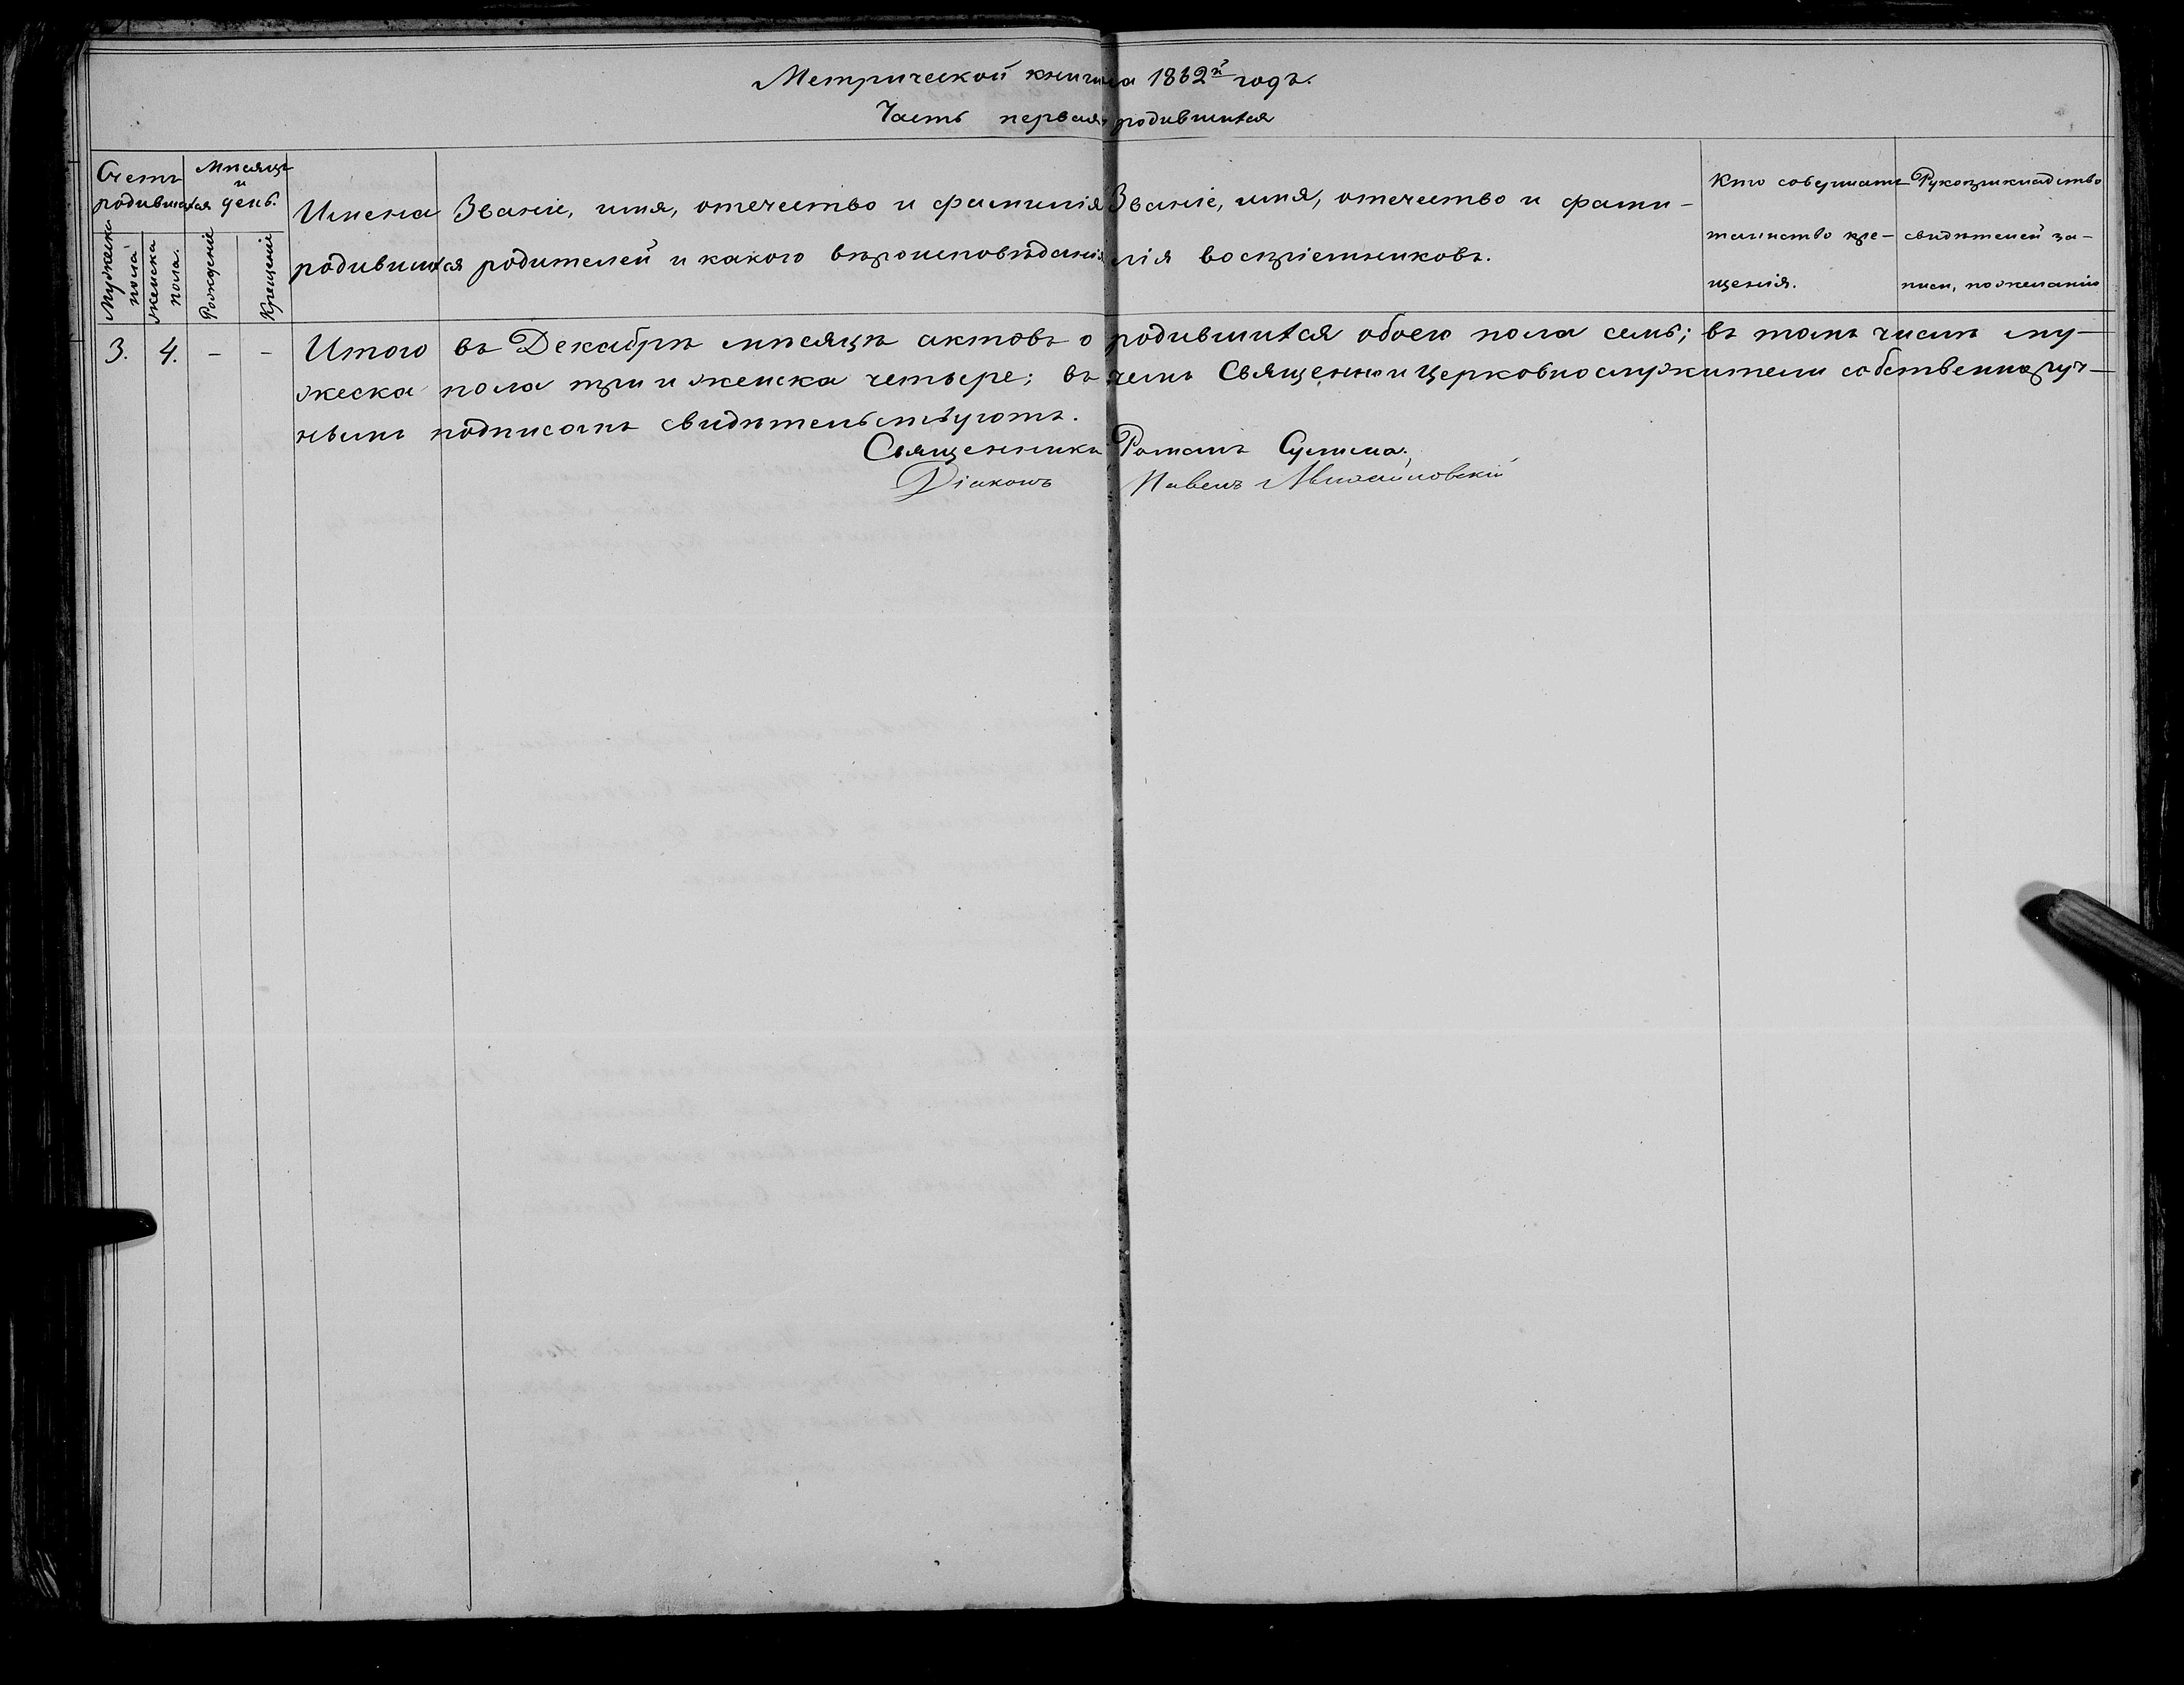 Метрической книги на 1862й годъ.
Часть первая, о родившихся
Счетъ родившихся
Мѣсяцъ и день.
Мужеска пола
Женска пола.
Рожденіе
Крещеніе
Имена
родившихся
Званіе, имя, отечество и фамилія
родителей и какого вѣроисповѣданія
Званіе, имя, отечество и фами-
лія воспріемниковъ.
Кто совершалъ
таинство кре-
щенія.
Рукоприкладство
свидѣтелей за-
писи, по желанію
3. 4. - - Итого въ Декабрѣ мѣсяцѣ актовъ о родившихся обоего пола семь; въ томъ числѣ му-
жеска пола три и женска четыре; въ чемъ Священно и Церковнослужители собственноруч-
нымъ подписомъ свидѣтельствуютъ.
Священникъ Романъ
Діаконъ Павелъ Михайловскій